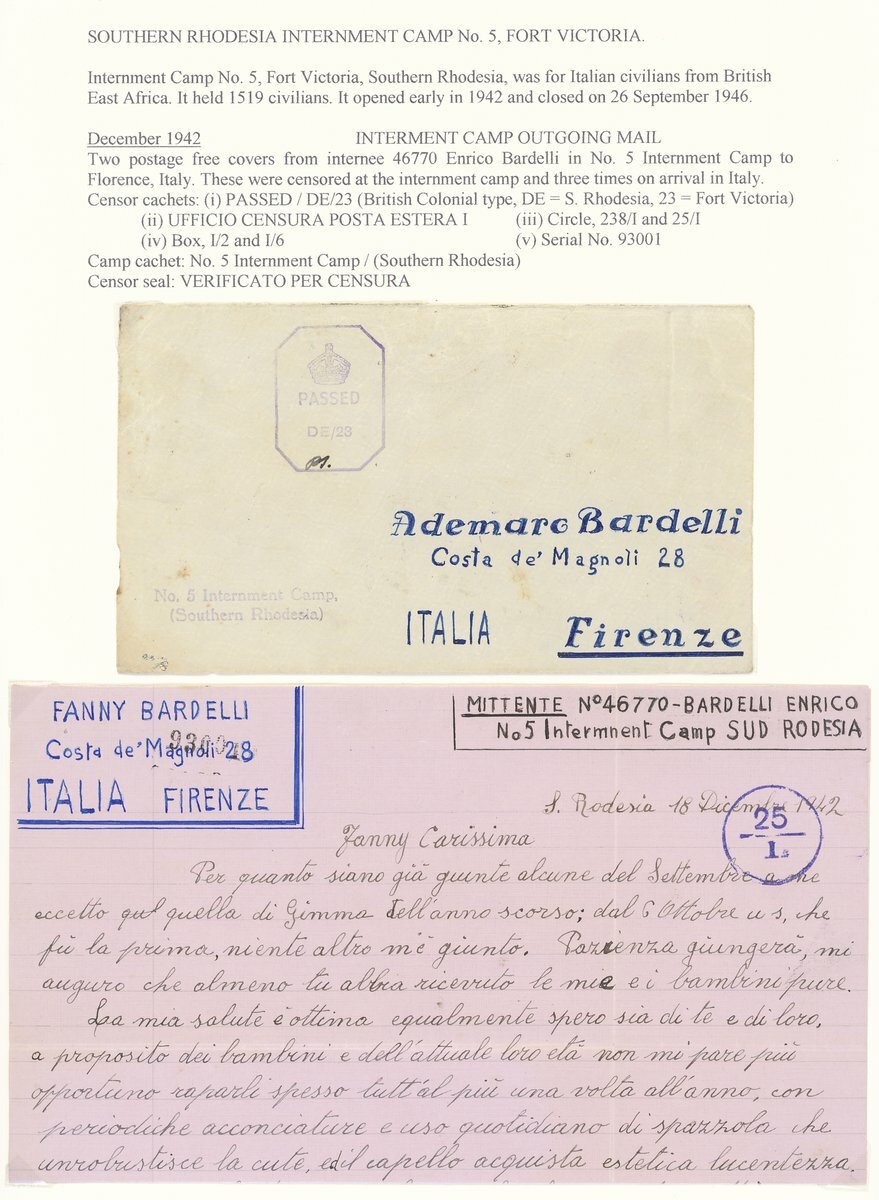 SOUTHERN RHODESIA INTERNMENT CAMP No. 5, FORT VICTORIA.
Internment Camp No. 5, Fort Victoria, Southern Rhodesia, was for Italian civilians from British
East Africa. It held 1519 civilians. It opened early in 1942 and closed on 26 September 1946.
December 1942 INTERMENT CAMP OUTGOING MAIL
Two postage free covers from internee 46770 Enrico Bardelli in No. 5 Internment Camp to
Florence, Italy. These were censored at the internment camp and three times on arrival in Italy.
Censor cachets: (i) PASSED / DE/23 (British Colonial type, DE = S. Rhodesia, 23 = Fort Victoria)
(ii) UFFICIO CENSURA POSTA ESTERA I (iii) Circle, 238/I and 25/I
(iv) Box, I/2 and I/6 (v) Serial No. 93001
Camp cachet: No. 5 Internment Camp / (Southern Rhodesia)
Censor seal: VERIFICATO PER CENSURA
PASSED
DE/23
Ademaro Bardelli
Costa de' Magnoli 28
No. 5 Internment Camp,
(Southern Rhodesia)
ITALIA Firenze
FANNY BARDELLI
Costa de' Magnoli 28
ITALIA FIRENZE
MITTENTE Nº46770-BARDELLI ENRICO
Nº5 Intermnent Camp SUD RODESIA
S. Rodesia 18 Dicembre 1942
25
I.
Fanny Carissima
Per quanto siano già giunte alcune del Settembre a me
eccetto quella di Gimma dell'anno scorso; dal 6 Ottobre u s, che
fù la prima, niente altro m'è giunto. Pazienza giungerà, mi
auguro che almeno tu abbia ricevuto le mie e i bambini pure.
La mia salute è ottima egualmente spero sia di te e di loro,
a proposito dei bambini e dell'attuale loro età non mi pare più
opportuno raparli spesso tutt'al più una volta all'anno, con
periodiche acconciature e uso quotidiano di spazzola che
unrobustisce la cute, ed il capello acquista estetica lucentezza.